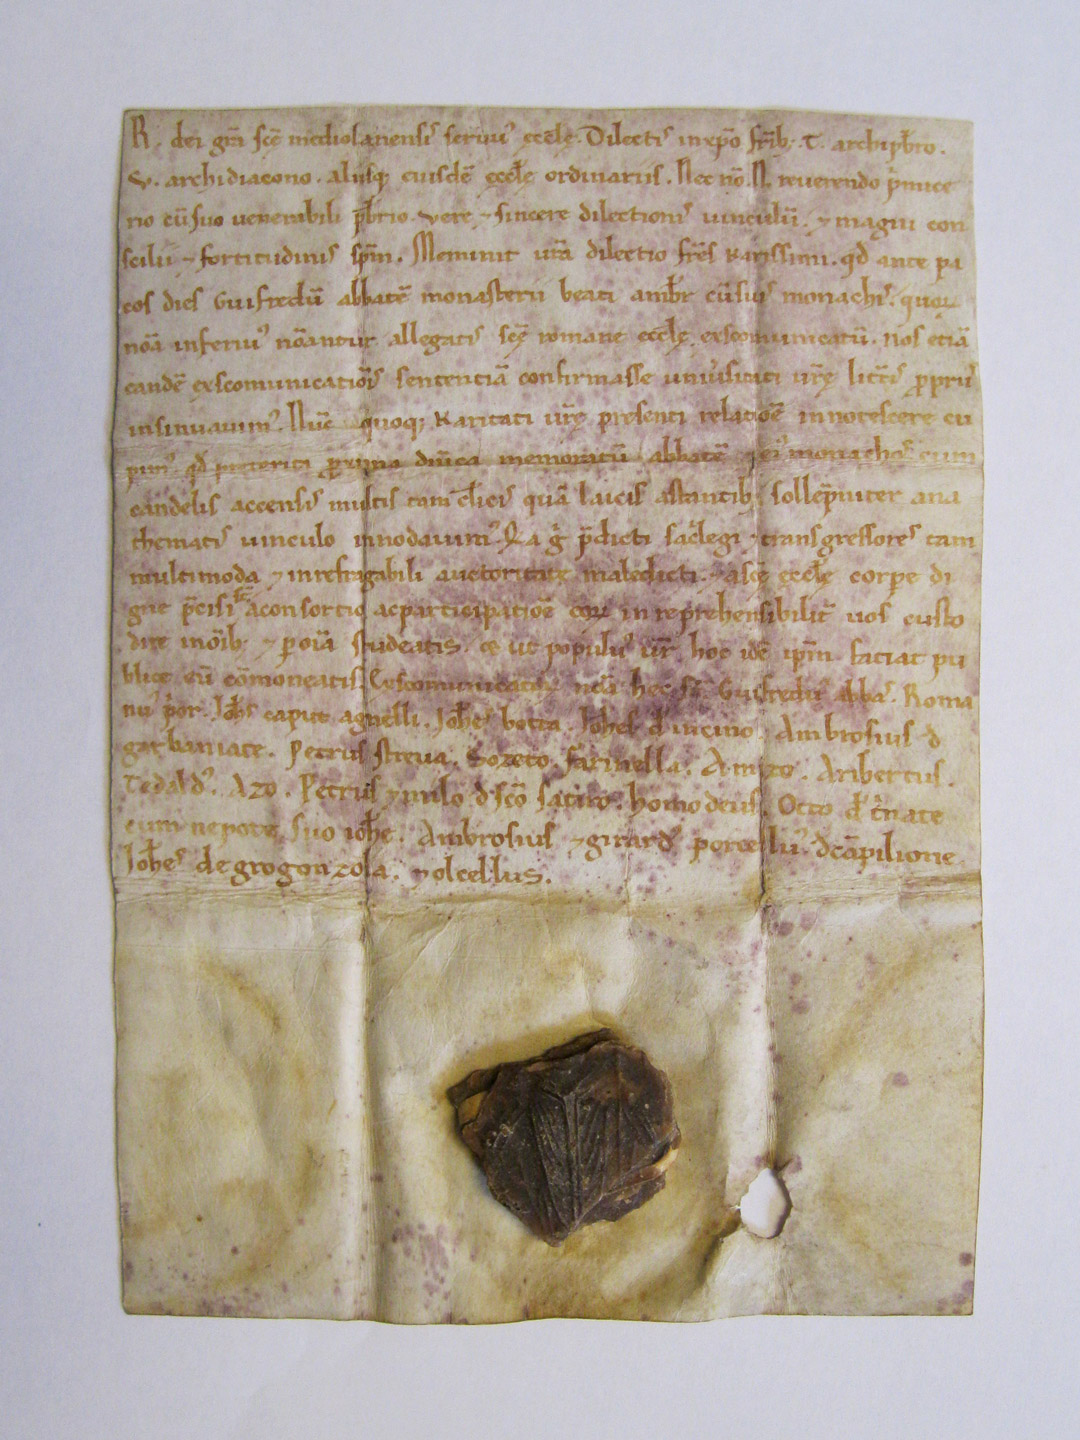 R. dei grā scē mediolanensis servus ecclę. Dilectis in xpō frīb; T. archipbro.
archidiacono. aliisq; eiusdē ecclę ordinariis. Nec nō N. reverendo p̄mice
rio cū suo venerabili pbrio vere & sincere dilectionis vinculū. & magni con
scilii & fortitudinis spm̄. Meminit vrā dilectio frēs karissimi. qd ante pa
cos dies Guifredū abbatē monasterii beati ambr cū suis monachis. quoꝝ
nōa inferius nōantur allegatis scę romane ecclę exscomunicatū. nos etiā
eandē exscomunicatiōis sententiā confirmasse univsitati vrę littīs ꝓpriis
insinuavimus. Nūc quoq; karitati vrę presenti relatiōe innotescere cu
pimus. qd preteriti proxima dnīca memoratū abbatē & eius monachos cum
candelis accensis multis tam clīcis quā laicis astantib; sollepniter ana
thematis vinculo innodavimus. Qa g̊ p̄dicti sac̊legi & transgressores tam
multimoda & inrefragabili auctoritate maledicti. & a scę ecclę corpe di
gne p̄cisi st̄ a consortio ac participatiōe eoꝝ inreprehensibilit̄ vos custo
dire inōib; & p oīa studeatis. & ut populus vr̄ hoc idē ipm̄ faciat pu
blice eū cōmoneatis. Exscomunicatoꝝ nōa hec st̄. Guifredus abbas. Roma
nus p̄or. Johēs caput agnelli. Johēs botta. Johēs d incino. Ambrosius d
garbaniate. Petrus streva. Gozeto. farinella. Amizo. Aribertus.
Tedaldus. Azo. Petrus & milo d scō satiro. homodeus. Otto d t̄nate
cum nepote suo iohē. Ambrosius & girardus porcellus. d cāpilione
Johēs de grogonzola. & olcellus.